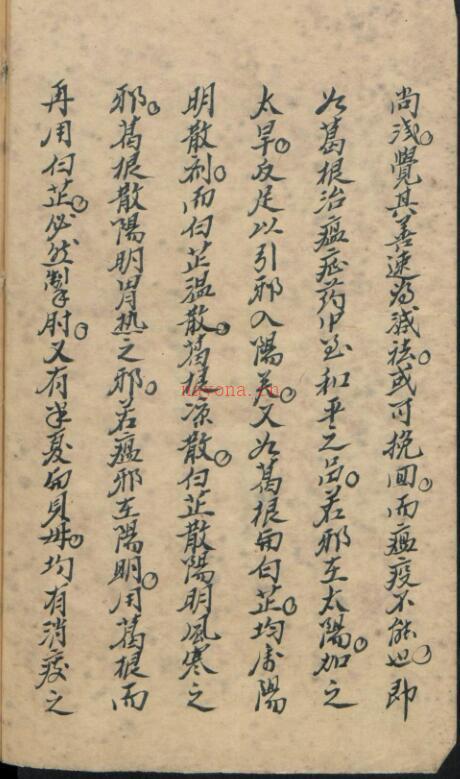 尚浅。覺其善速为减祛。或可挽回。而瘟疫不能也。即
如葛根治瘟症药中至和平之品。若邪在太陽。加之
太早。反足以引邪入陽明。又如葛根与白芷。均属陽
明散剂。而白芷温散。葛根凉散。白芷散陽明風寒之
邪。葛根散陽明胃热之邪。若瘟邪在陽明。用葛根而
再用白芷。必然掣肘。又有半夏与貝母。均有消痰之
nayona.cn